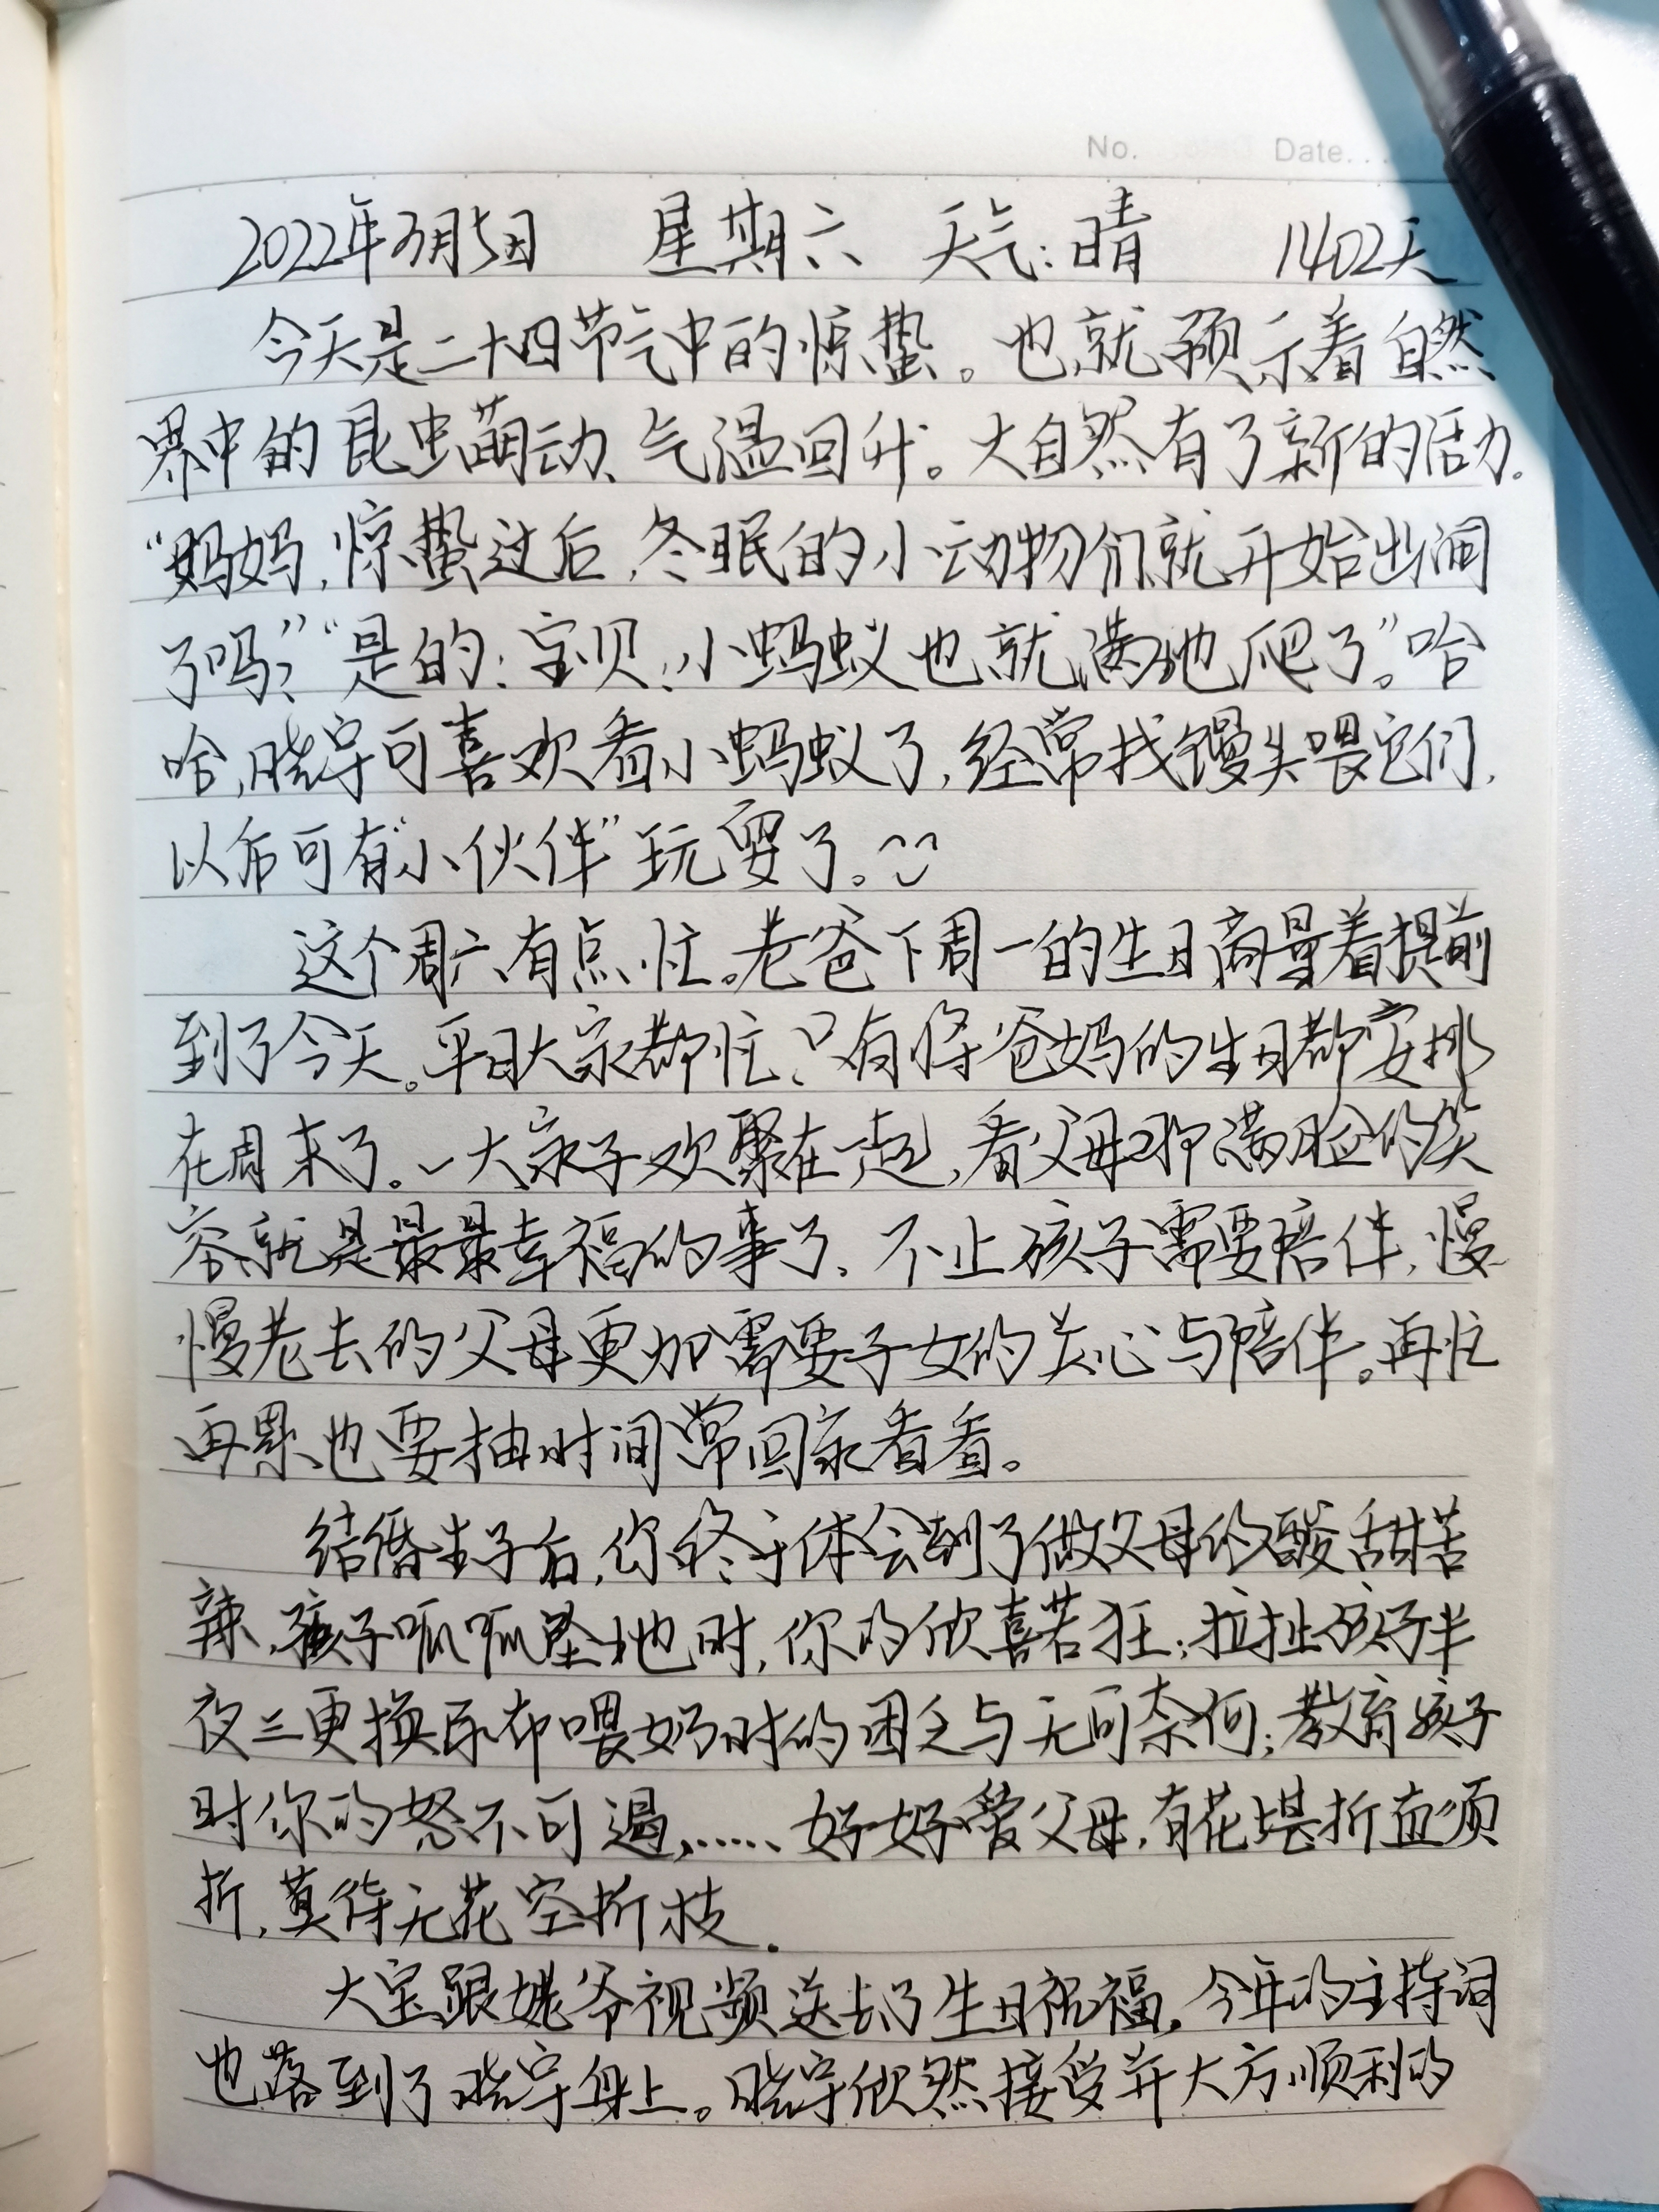 No. Date. . .
2022年3月5日 星期六 天气:晴 1402天
今天是二十四节气中的惊蛰。也就预示着自然
界中的昆虫萌动、气温回升。大自然有了新的活力.
“妈妈,惊蛰过后,冬眠的小动物们就开始出洞
了吗?”“是的,宝贝,小蚂蚁也就满地爬了。”哈
哈,晓宇可喜欢看小蚂蚁了,经常找馒头喂它们,
以后可有“小伙伴”玩耍了。
这个周六有点忙。老爸下周一的生日商量着提前
到了今天。平日大家都忙,只有将爸妈的生日都安排
在周末了。一大家子欢聚在一起,看父母那满脸的笑
容就是最最幸福的事了、不止孩子需要陪伴,慢
慢老去的父母更加需要子女的关心与陪伴。再忙
再累也要抽时间常回家看看。
结婚生子后,你终于体会到了做父母的酸甜苦
辣,孩子呱呱坠地时,你的欣喜若狂;拉扯孩子半
夜三更换尿布喂奶时的困乏与无可奈何;教育孩子
时你的怒不可遏,……好好爱父母,有花堪折直须
折,莫待无花空折枝.
大宝跟姥爷视频送去了生日祝福,今年的主持词
也落到了晓宇身上。晓宇欣然接受并大方顺利的